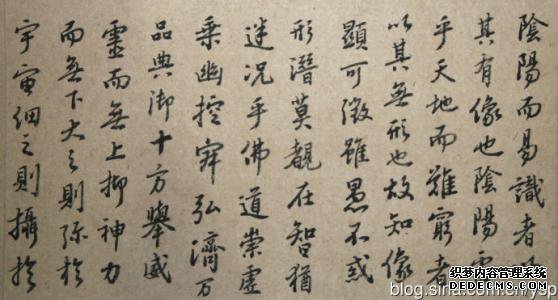 陰陽而易識者
其有像也陰陽
乎天地而難窮者
以其無形也故知像
顯可徵雖愚不惑
形潛莫覩在智猶
迷况乎佛道崇虛
乘幽控寂弘濟万
品典御十方舉威
靈而無上抑神力
而無下大之則弥於
宇宙細之則攝於
blog.sina.com